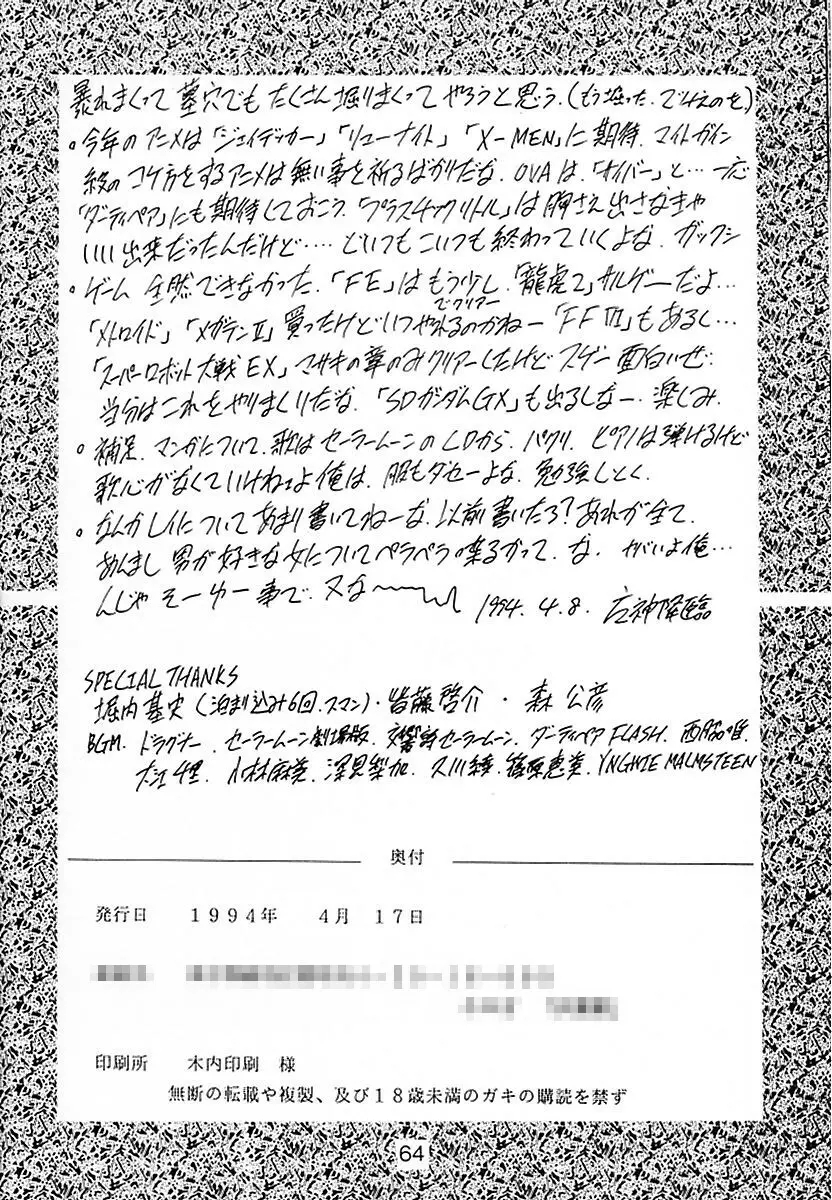 暴れまくって墓穴でもたくさん堀りまくってやろうと思う.(もう堀った.でねえのを)
。今年のアニメは「ジェイデッカー」「リューナイト」「X-MEN」に期待.マイトガイン
級のコケ方をするアニメは無い事を祈るばかりだな.OVAは、「ガイバー」と…一応
「ダーティペア」にも期待しておこう.「プラスチックリトル」は胸さえ出さなきゃ
いい出来だったんだけど‥‥どいつもこいつも終わっていくよな.ガックシ
。ゲーム 全然できなかった.「FE」はもう少しでクリアー.「龍虎2」サルゲーだよ…
「メトロイド」「メガテンⅡ」買ったけどいつやれるのかねー「FFⅥ」もあるし…
「スーパーロボット大戦EX」マサキの章のみクリアーしたけどスゲー面白いぜ.
当分はこれをやりまくりだな.「SDガンダムGX」も出るしなー.楽しみ.
。補足.マンガについて.歌はセーラームーンのCDから.パクリ.ピアノは弾けるけど
歌心がなくていけねェよ俺は.服もダセーよな.勉強しとく.
。なんかレイについてあまり書いてねーな.以前書いたろ?あれが全て.
あんまし男が好きな女についてペラペラ喋るかって.な.ヤバいよ俺…
んじゃそーゆー事で.又な〜〜 1994.4.8. 降臨
SPECIAL THANKS
堀内基史(泊まり込み6回.スマン)・皆藤啓介・森公彦
BGM.ドラグナー.セーラームーン劇場版.交響詩セーラームーン.ダーティペアFLASH.西脇唯.
大江千里.小林麻美.深見梨加.久川綾.篠原恵美.YNGWIE MALMSTEEN
奥付
発行日 1994年 4月 17日
印刷所 木内印刷 様
無断の転載や複製、及び18歳未満のガキの購読を禁ず
64